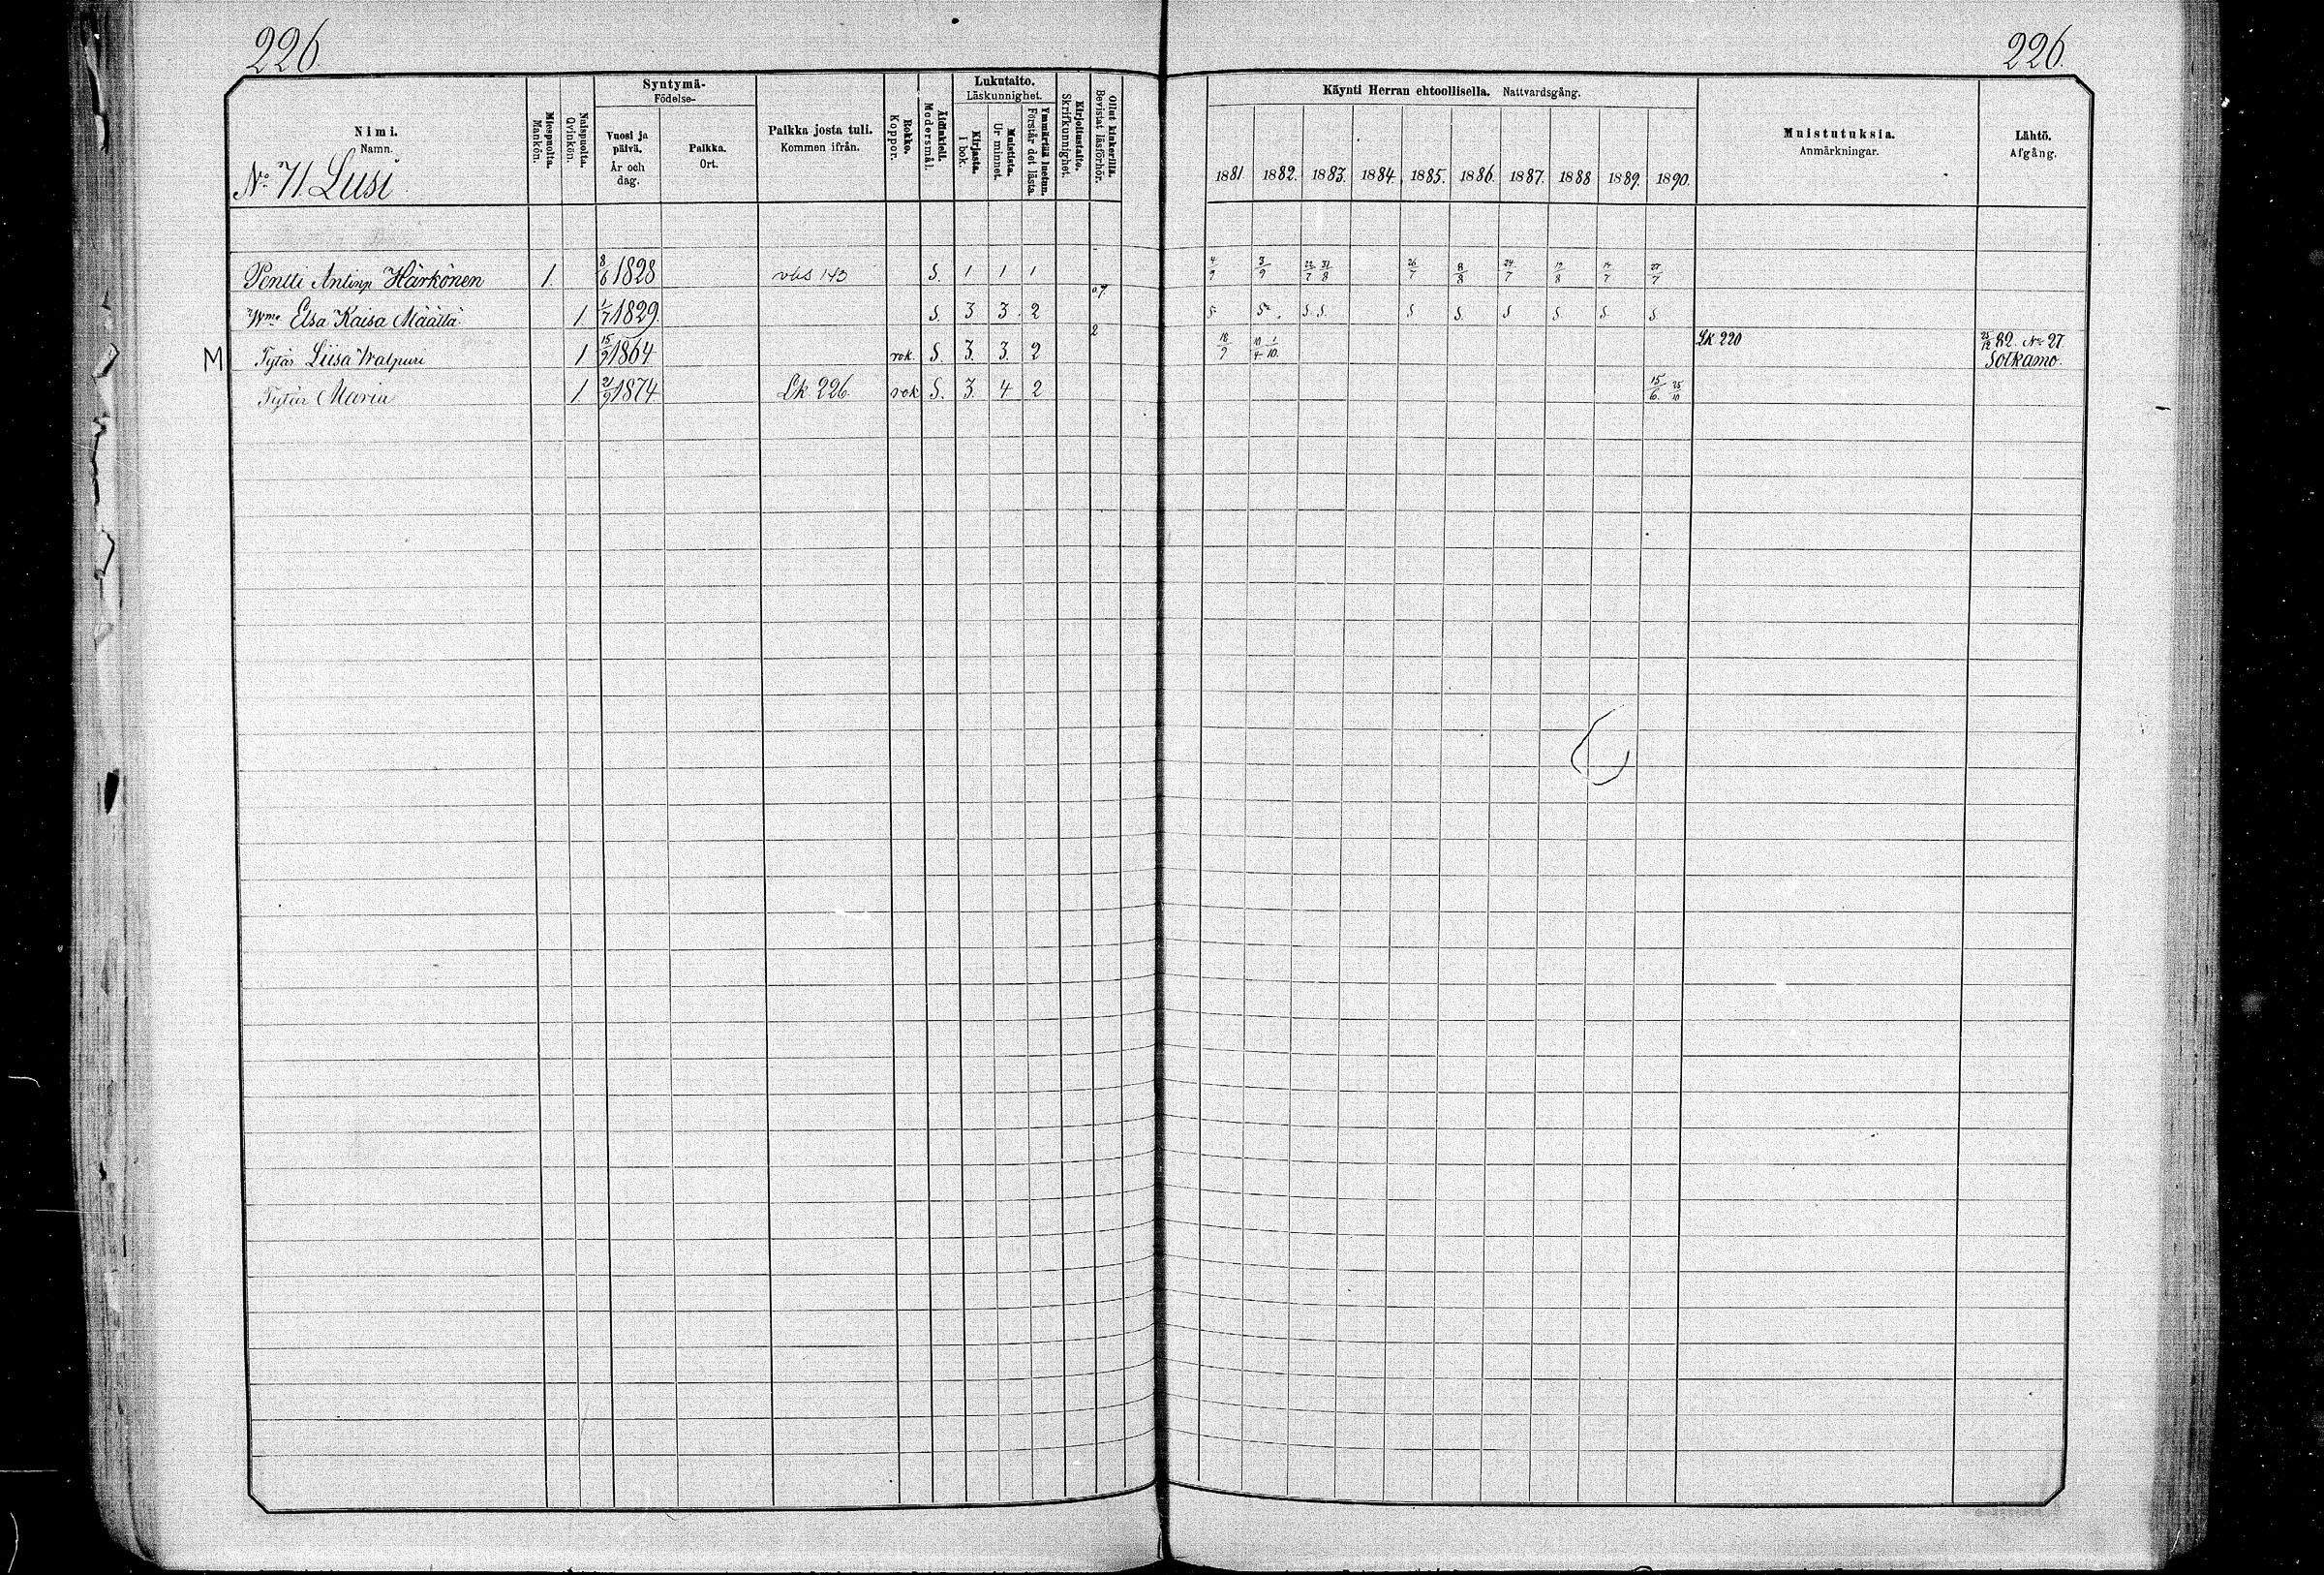 226
226.
Nimi.
Namn.
No 71. Lusi
Miespuolta.
Mankön.
Naispuolta.
Qvinkön.
Syntymä-
Födelse-
Vuosi ja päivä.
År och dag.
Paikka.
Ort.
Paikka josta tuli.
Kommen ifrån.
Rokko.
Koppor.
Äidinkieli.
Modersmål.
Lukutaito.
Läskunnighet.
Kirjasta.
I bok.
Muistista.
Ur minnet.
Ymmärtää luetun.
Förstår det lästa.
Kirjoitustaito.
Skrifkunnighet.
Ollut kinkerillä.
Bevistat läsförhör.
Käynti Herran ehtoollisella. Nattvardsgång.
1881. 1882. 1883. 1884. 1885. 1886. 1887. 1888 1889. 1890.
Muistutuksia.
Anmärkningar.
Lähtö.
Afgång.
Pentti Antinp Härkönen 1. 8/6 1828 S. 1 1 1 4/9 3/9 22/7 31/8 26/7 8/8 24/7 19/8 14/7 27/7
Wmo Elsa Kaisa Määttä 1. 1/7 1829. S. 3 3. 2 S. S S. S. S S. S S. S. S
M Tytär Liisa Walpuri 1 15/9 1864 rok. S. 3. 3. 2 18/9 10/4 1/10. Lk 220 25/12 82. No 27
Sotkamo.
Tytär Maria 1. 21/9 1874 Lk. 226. rok S. 3. 4 2 15/6. 25/10